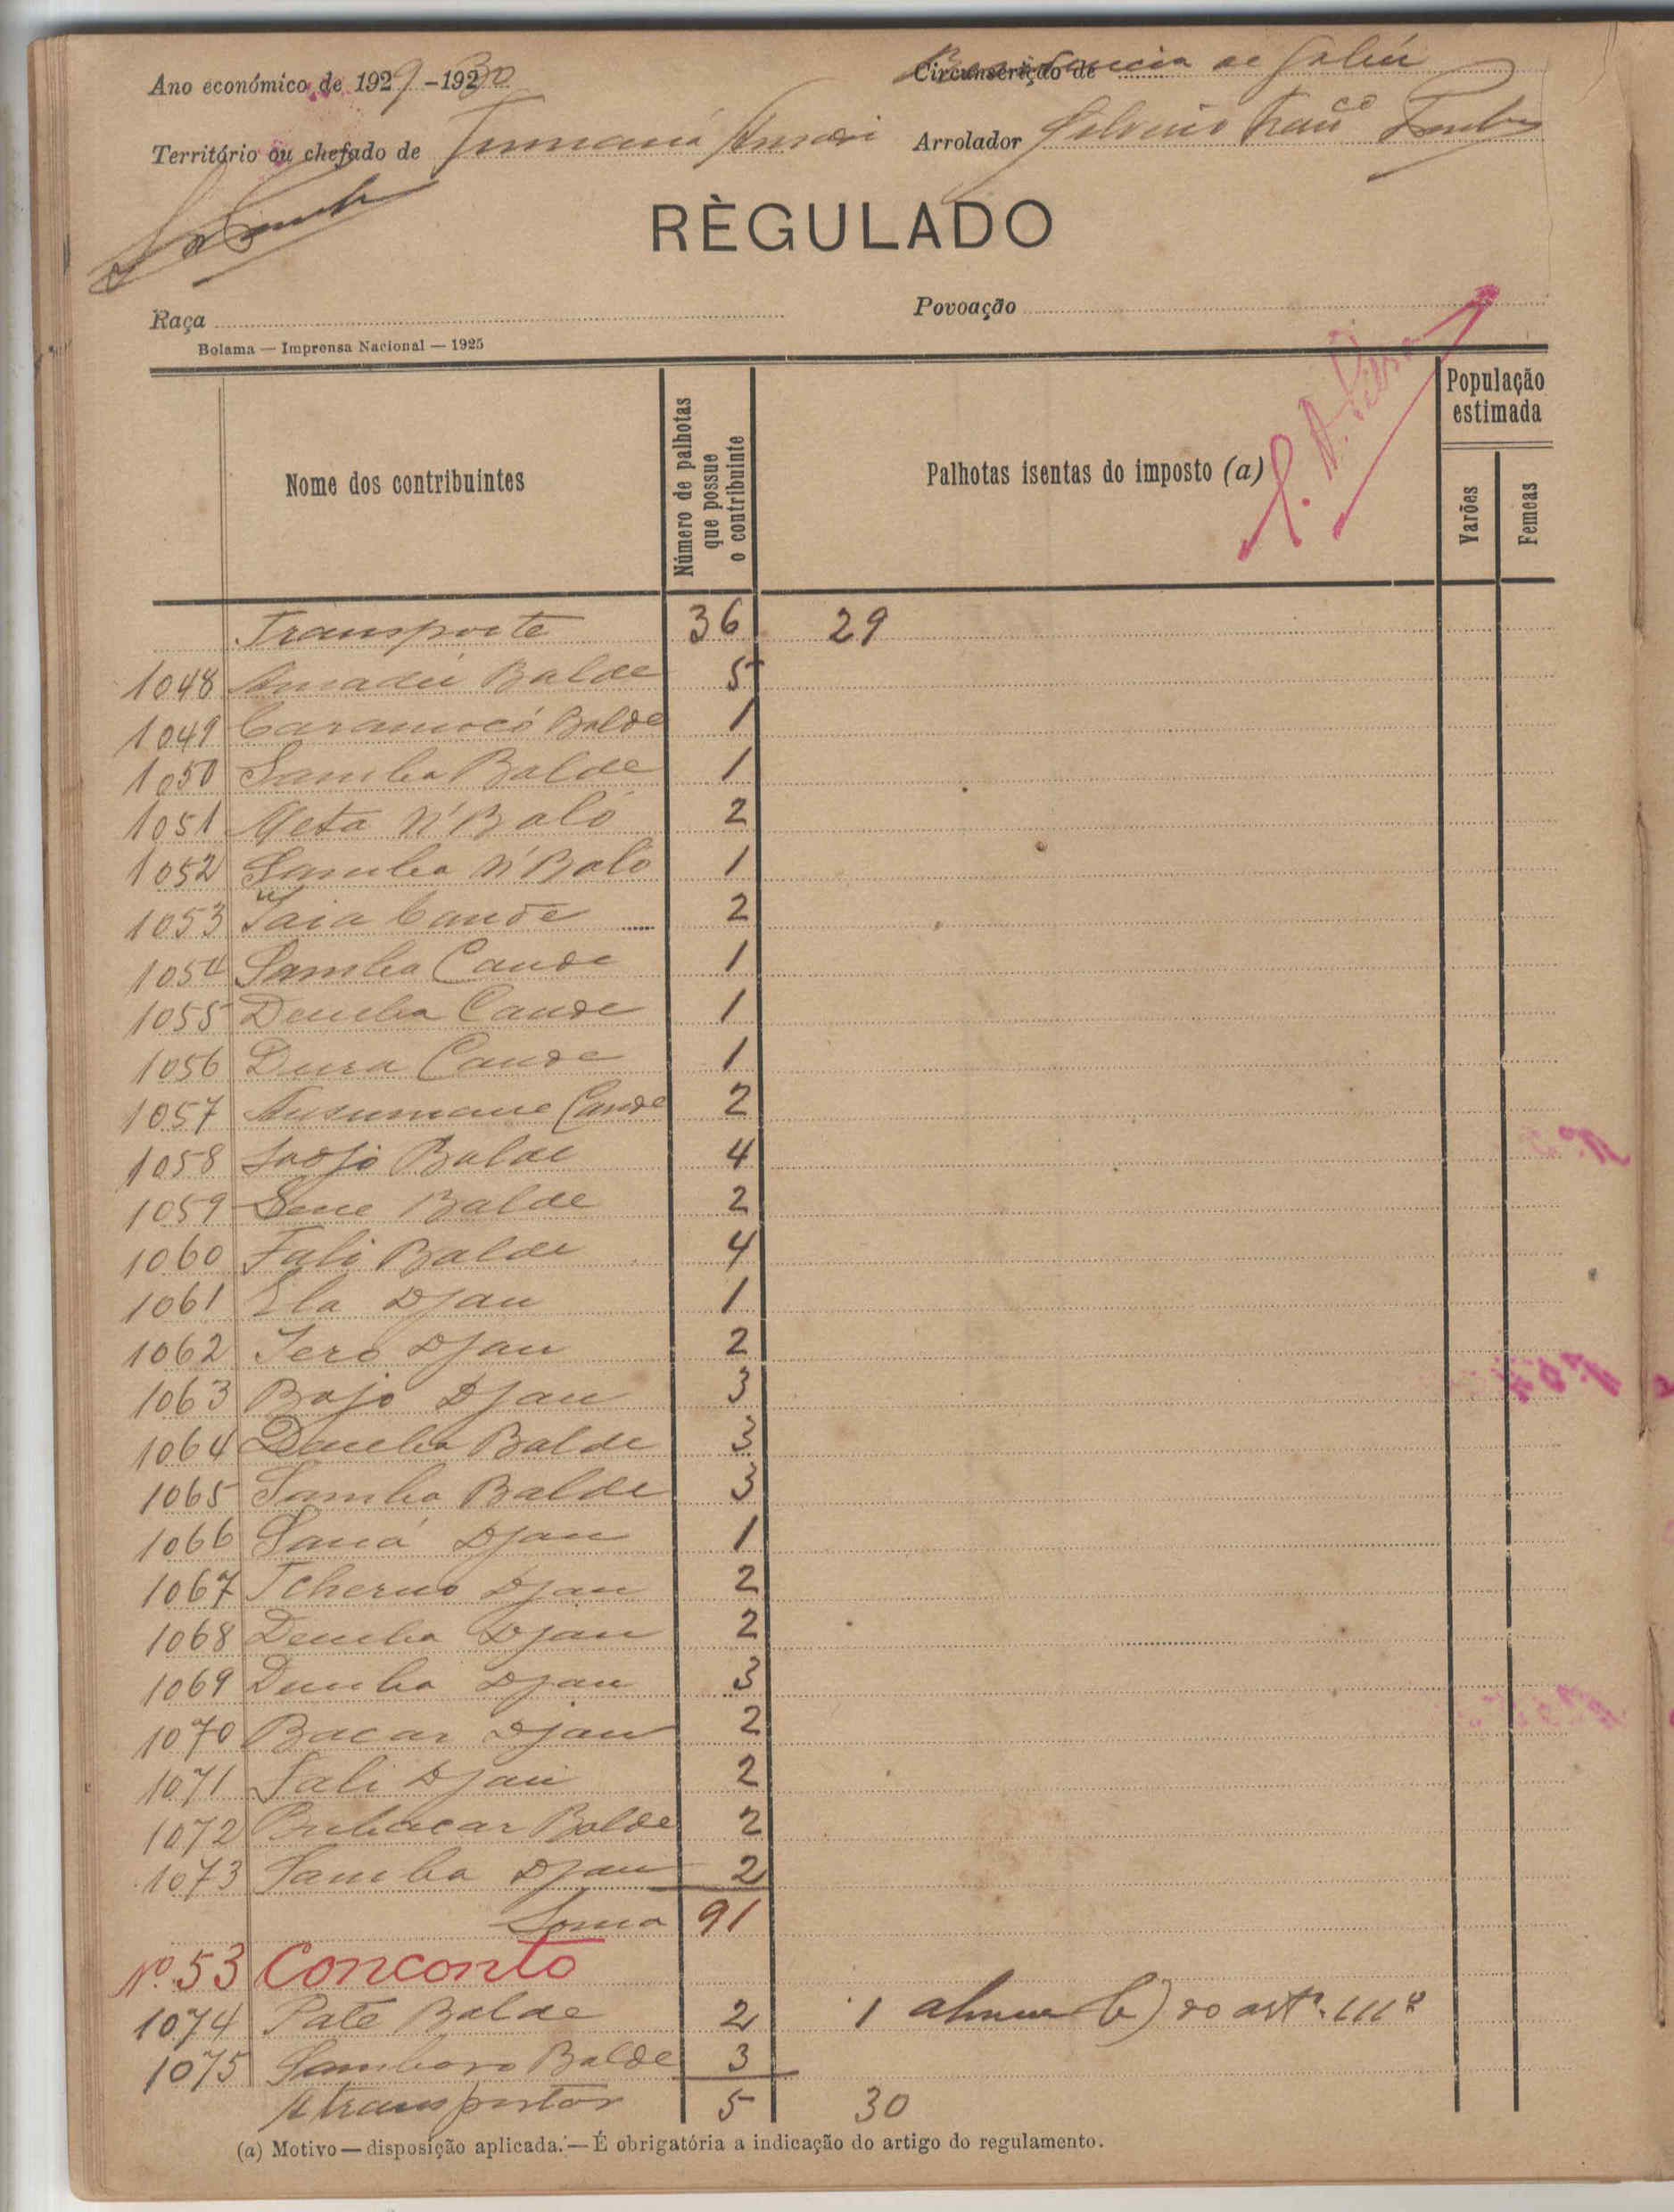 Ano económico de 1929-1930
Circunscrição de Residencia de Gabú
Território ou chefado de Tumaná
Arrolador
RÈGULADO
Raça
Povoação
Bolama — Imprensa Nacional — 1925
Nome dos contribuintes
Número de palhotas que possue o contribuinte
Palhotas isentas do imposto (a)
População estimada
Varões
Femeas
Transporte 36 29
1048 Amadú Balde 5
1049 Caramocó Balde 1
1050 Samba Balde 1
1051 Meta N'Baló 2
1052 Samba N'Baló 1
1053 Saia Cande 2
1054 Samba Cande 1
1055 Demba Cande 1
1056 Dura Cande 1
1057 Ansumane Cande 2
1058 Balde 4
1059 Sene Balde 2
1060 Fali Balde 4
1061 Ela Djau 1
1062 Iero Djau 2
1063 Bojo Djau 3
1064 Demba Balde 3
1065 Samba Balde 3
1066 Saná Djau 1
1067 Tcherno Djau 2
1068 Demba Djau 2
1069 Demba Djau 3
1070 Bacar Djau 2
1071 Sali Djau 2
1072 Bubacar Balde 2
1073 Samba Djau 2
Soma 91
Nº 53 Conconto
1074 Pate Balde 2 1 alinea b) do artº. 111º
1075 Samboro Balde 3
A transportar 5 30
(a) Motivo — disposição aplicada. — É obrigatória a indicação do artigo do regulamento.